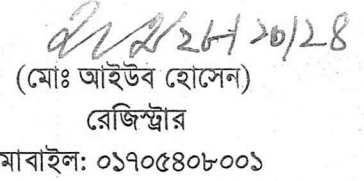 ২৮/১০/২৪
(মোঃ আইউব হোসেন)
রেজিস্ট্রার
মাবাইল: ০১৭০৫৪০৮০০১